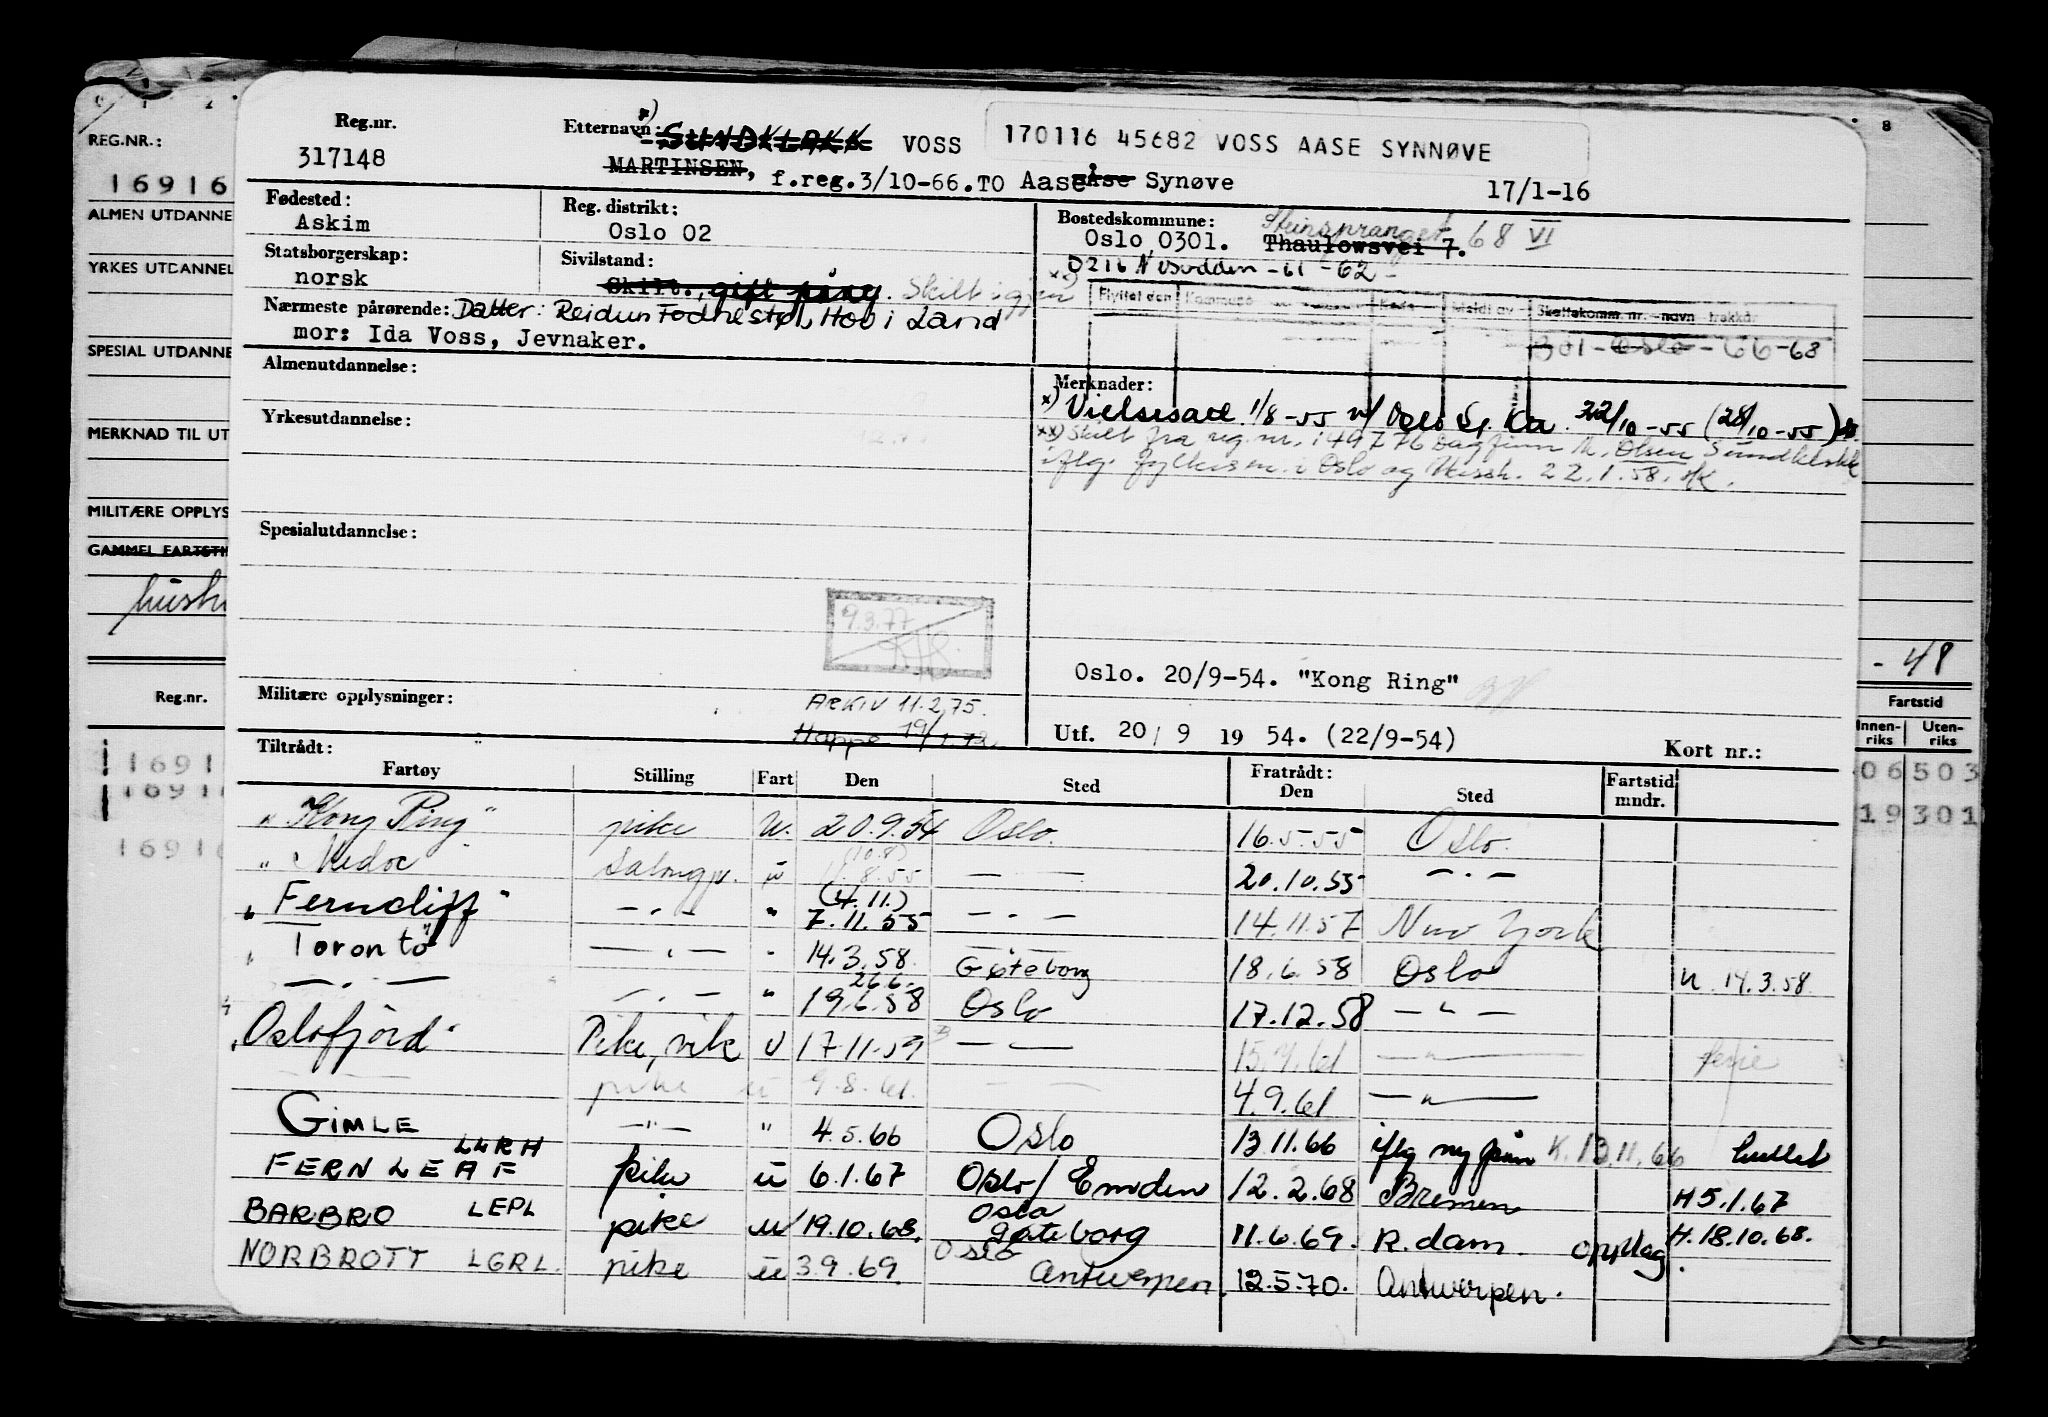 Reg.nr.
317148
Etternavn: x) SUNDKLAKK VOSS
170116 45682 VOSS AASE SYNNØVE
MARTINSEN, f.reg.3/10-66.TO Aase Åse Synøve 17/1-16
Fødested:
Askim
Reg. distrikt:
Oslo 02
Bostedskommune:
Oslo 0301. Thaulowsvei 7. Steinspranget 68 VI
0216 Nesodden -61-62
Statsborgerskap:
norsk
Sivilstand:
Skilt., gift påny. Skilt igjen xx)
Nærmeste pårørende: Datter: Reidun Fodnestøl, Hov i Land
mor: Ida Voss, Jevnaker.
Flyttet den Kommune Kode Meldt av Skattekomm. nr. - navn - trekkår
301-Oslo-66-68
Almenutdannelse:
Yrkesutdannelse:
Spesialutdannelse:
Merknader:
x) Vielsesatt. 1/8-55 v/ Oslo 22/10-55 (28/10-55)
xx) Skilt fra reg.nr. 149776 Dagfinn M. Olsen Sundklakk
iflg. fylkesm. i Oslo og 22.1.58.
9.3.77
Militære opplysninger:
ARKIV 11.2.75.
Mappe 19/1.72
Oslo. 20/9-54. "Kong Ring"
Utf. 20/9 1954. (22/9-54)
Kort nr.:
Tiltrådt:
Fratrådt:
Fartøy Stilling Fart Den Sted Den Sted Fartstid mndr.
"Kong Ring" pike u. 20.9.54 Oslo. 16.5.55 Oslo.
"Medoc" salongp. u (10.8) 11.8.55 — — 20.10.55 — . —
"Ferncliff" — . — " (4.11.) 7.11.55 — . — 14.11.57 New York
"Toronto" — . — " 14.3.58. Göteborg 18.6.58 Oslo u. 14.3.58.
— . — — . — " 26.6. 19.6.58 Oslo 17.12.58 — " —
"Oslofjord" Pike, vik u 17.11.59 — — 15.7.61 — " — ferie
— — pike u 9.8.61. — — 4.9.61 — " —
GIMLE — " — " 4.5.66 Oslo 13.11.66 iflg ny K. 13.11.66 hullet
FERNLEAF LLRH pike u 6.1.67 Oslo/Emden 12.2.68 Bremen H 5.1.67
BARBRO LEPL pike u 19.10.68. Oslo Gøteborg 11.6.69. R.dam. opplag H. 18.10.68.
NORBROTT LGRL. pike u 3.9.69. Oslo Antwerpen. 12.5.70. Antwerpen.
REG.NR.:
16916
ALMEN UTDANNE
YRKES UTDANNEL
SPESIAL UTDANNE
MERKNAD TIL UT
MILITÆRE OPPLYS
GAMMEL FARTSTI
Reg.nr.
1691
16916
16916
8
- 48
Fartstid
Innenriks Utenriks
06 503
19 301